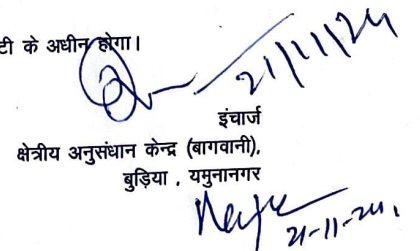 टी के अधीन होगा।
21/11/24
इंचार्ज
क्षेत्रीय अनुसंधान केन्द्र (बागवानी),
बुड़िया , यमुनानगर
21-11-24.